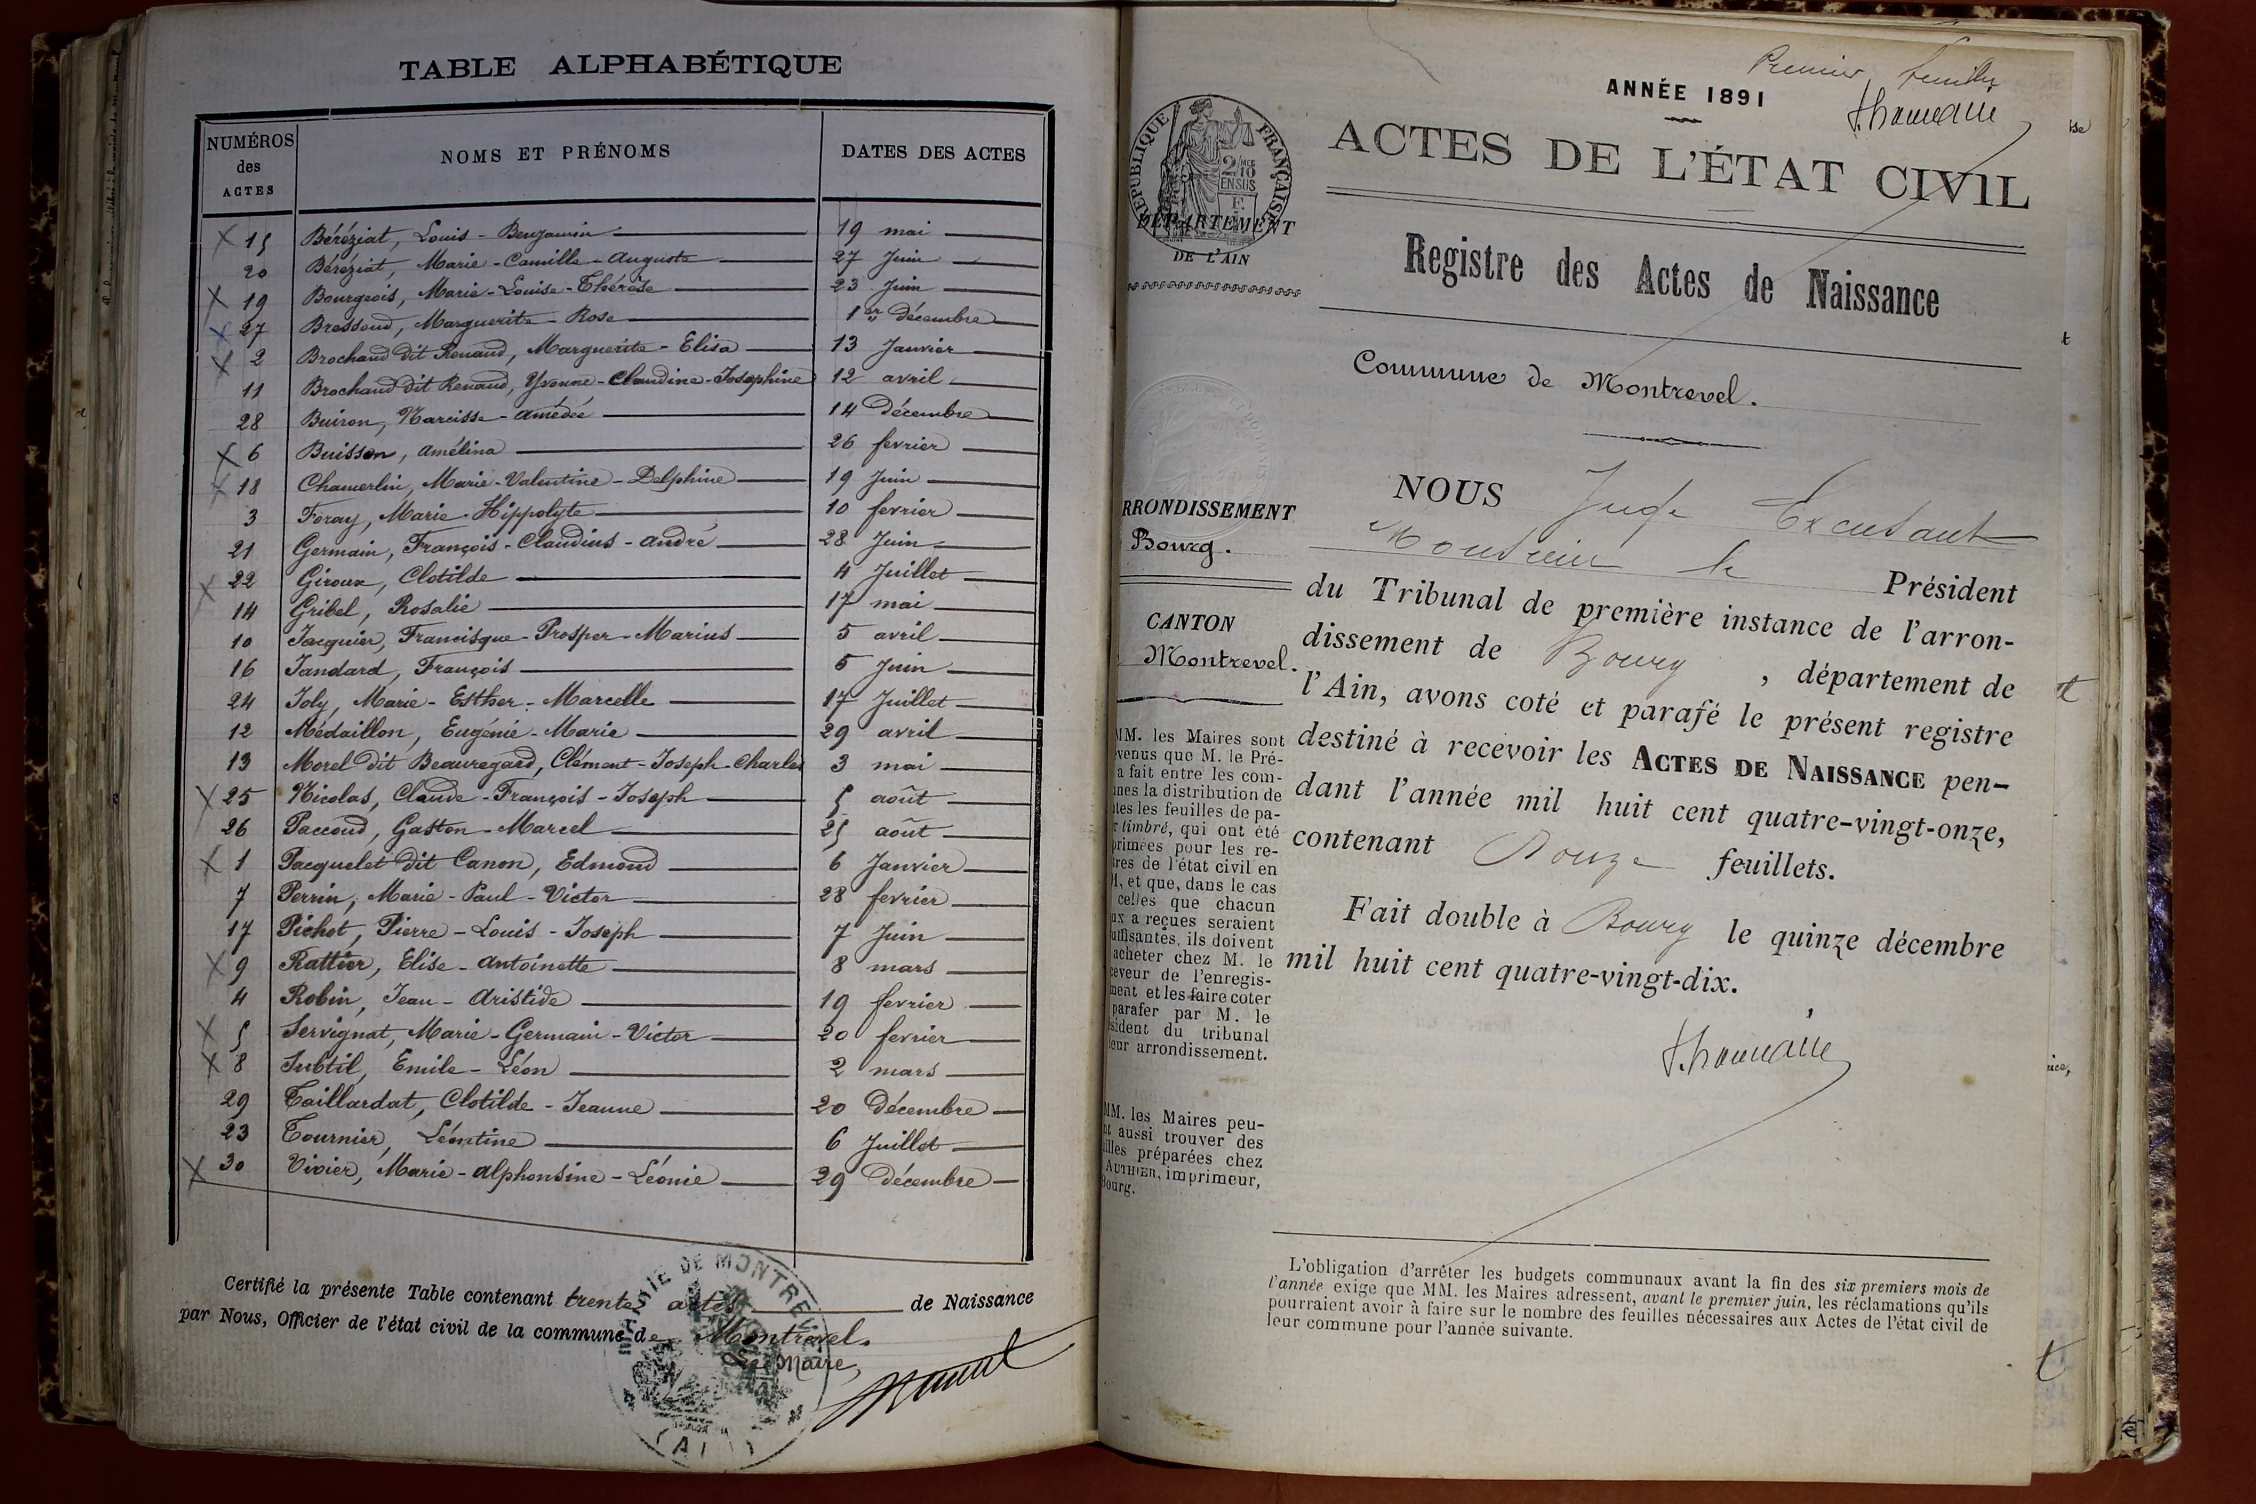 TABLE ALPHABÉTIQUE
NUMÉROS des ACTES NOMS ET PRÉNOMS DATES DES ACTES
15 Béréziat, Louis-Benjamin 19 mai
20 Béréziat, Marie-Camille-Auguste 27 Juin
19 Bourgeois, Marie-Louise-Thérèse 23 Juin
27 Bressoud, Marguerite-Rose 1er décembre
2 Brochand dit Renaud, Marguerite-Elisa 13 Janvier
11 Brochand dit Renaud, Yvonne-Claudine-Joséphine 12 avril
28 Buiron, Narcisse-Amédée 14 Décembre
6 Buisson, Amélina 26 fevrier
18 Chamerlin, Marie-Valentine-Delphine 19 Juin
3 Foray, Marie-Hippolyte 10 fevrier
21 Germain, François-Claudius-André 28 Juin
22 Giroux, Clotilde 4 Juillet
14 Gribel, Rosalie 17 mai
10 Jacquier, Francisque-Prosper-Marius 5 avril
16 Jandard, François 5 Juin
24 Joly, Marie-Esther-Marcelle 17 Juillet
12 Médaillon, Eugénie-Marie 29 avril
13 Morel dit Beauregard, Clément-Joseph-Charles 3 mai
25 Nicolas, Claude-François-Joseph 5 août
26 Paccoud, Gaston-Marcel 25 août
1 Pacquelet dit Canon, Edmond 6 Janvier
7 Perrin, Marie-Paul-Victor 28 fevrier
17 Pichot, Pierre-Louis-Joseph 7 Juin
9 Rattier, Elise-Antoinette 8 mars
4 Robin, Jean-Aristide 19 fevrier
5 Servignat, Marie-Germain-Victor 20 fevrier
8 Subtil, Emile-Léon 2 mars
29 Taillardat, Clotilde-Jeanne 20 Décembre
23 Tournier, Léontine 6 Juillet
30 Vivier, Marie-Alphonsine-Léonie 29 Décembre
Certifié la présente Table contenant trente actes de Naissance
par Nous, Officier de l'état civil de la commune de Montrevel.
Le Maire,
MAIRIE DE MONTREVEL
(AIN)
Premier feuillet
ANNÉE 1891
ACTES DE L'ÉTAT CIVIL
RÉPUBLIQUE FRANÇAISE
DÉPARTEMENT
DE L'AIN
Registre des Actes de Naissance
Commune de Montrevel.
RRONDISSEMENT
Bourg.
CANTON
Montrevel.
MM. les Maires sont
venus que M. le Pré-
a fait entre les com-
nes la distribution de
tes les feuilles de pa-
timbré, qui ont été
primées pour les re-
res de l'état civil en
et que, dans le cas
celles que chacun
ux a reçues seraient
uffisantes, ils doivent
acheter chez M. le
ceveur de l'enregis-
ment et les faire coter
parafer par M. le
sident du tribunal
leur arrondissement.
MM. les Maires peu-
nt aussi trouver des
illes préparées chez
AUTHIER, imprimeur,
Bourg.
NOUS Juge Excusant
Monsieur le Président
du Tribunal de première instance de l'arron-
dissement de Bourg, département de
l'Ain, avons coté et parafé le présent registre
destiné à recevoir les ACTES DE NAISSANCE pen-
dant l'année mil huit cent quatre-vingt-onze,
contenant Douze feuillets.
Fait double à Bourg le quinze décembre
mil huit cent quatre-vingt-dix.
L'obligation d'arrêter les budgets communaux avant la fin des six premiers mois de
l'année exige que MM. les Maires adressent, avant le premier juin, les réclamations qu'ils
pourraient avoir à faire sur le nombre des feuilles nécessaires aux Actes de l'état civil de
leur commune pour l'année suivante.